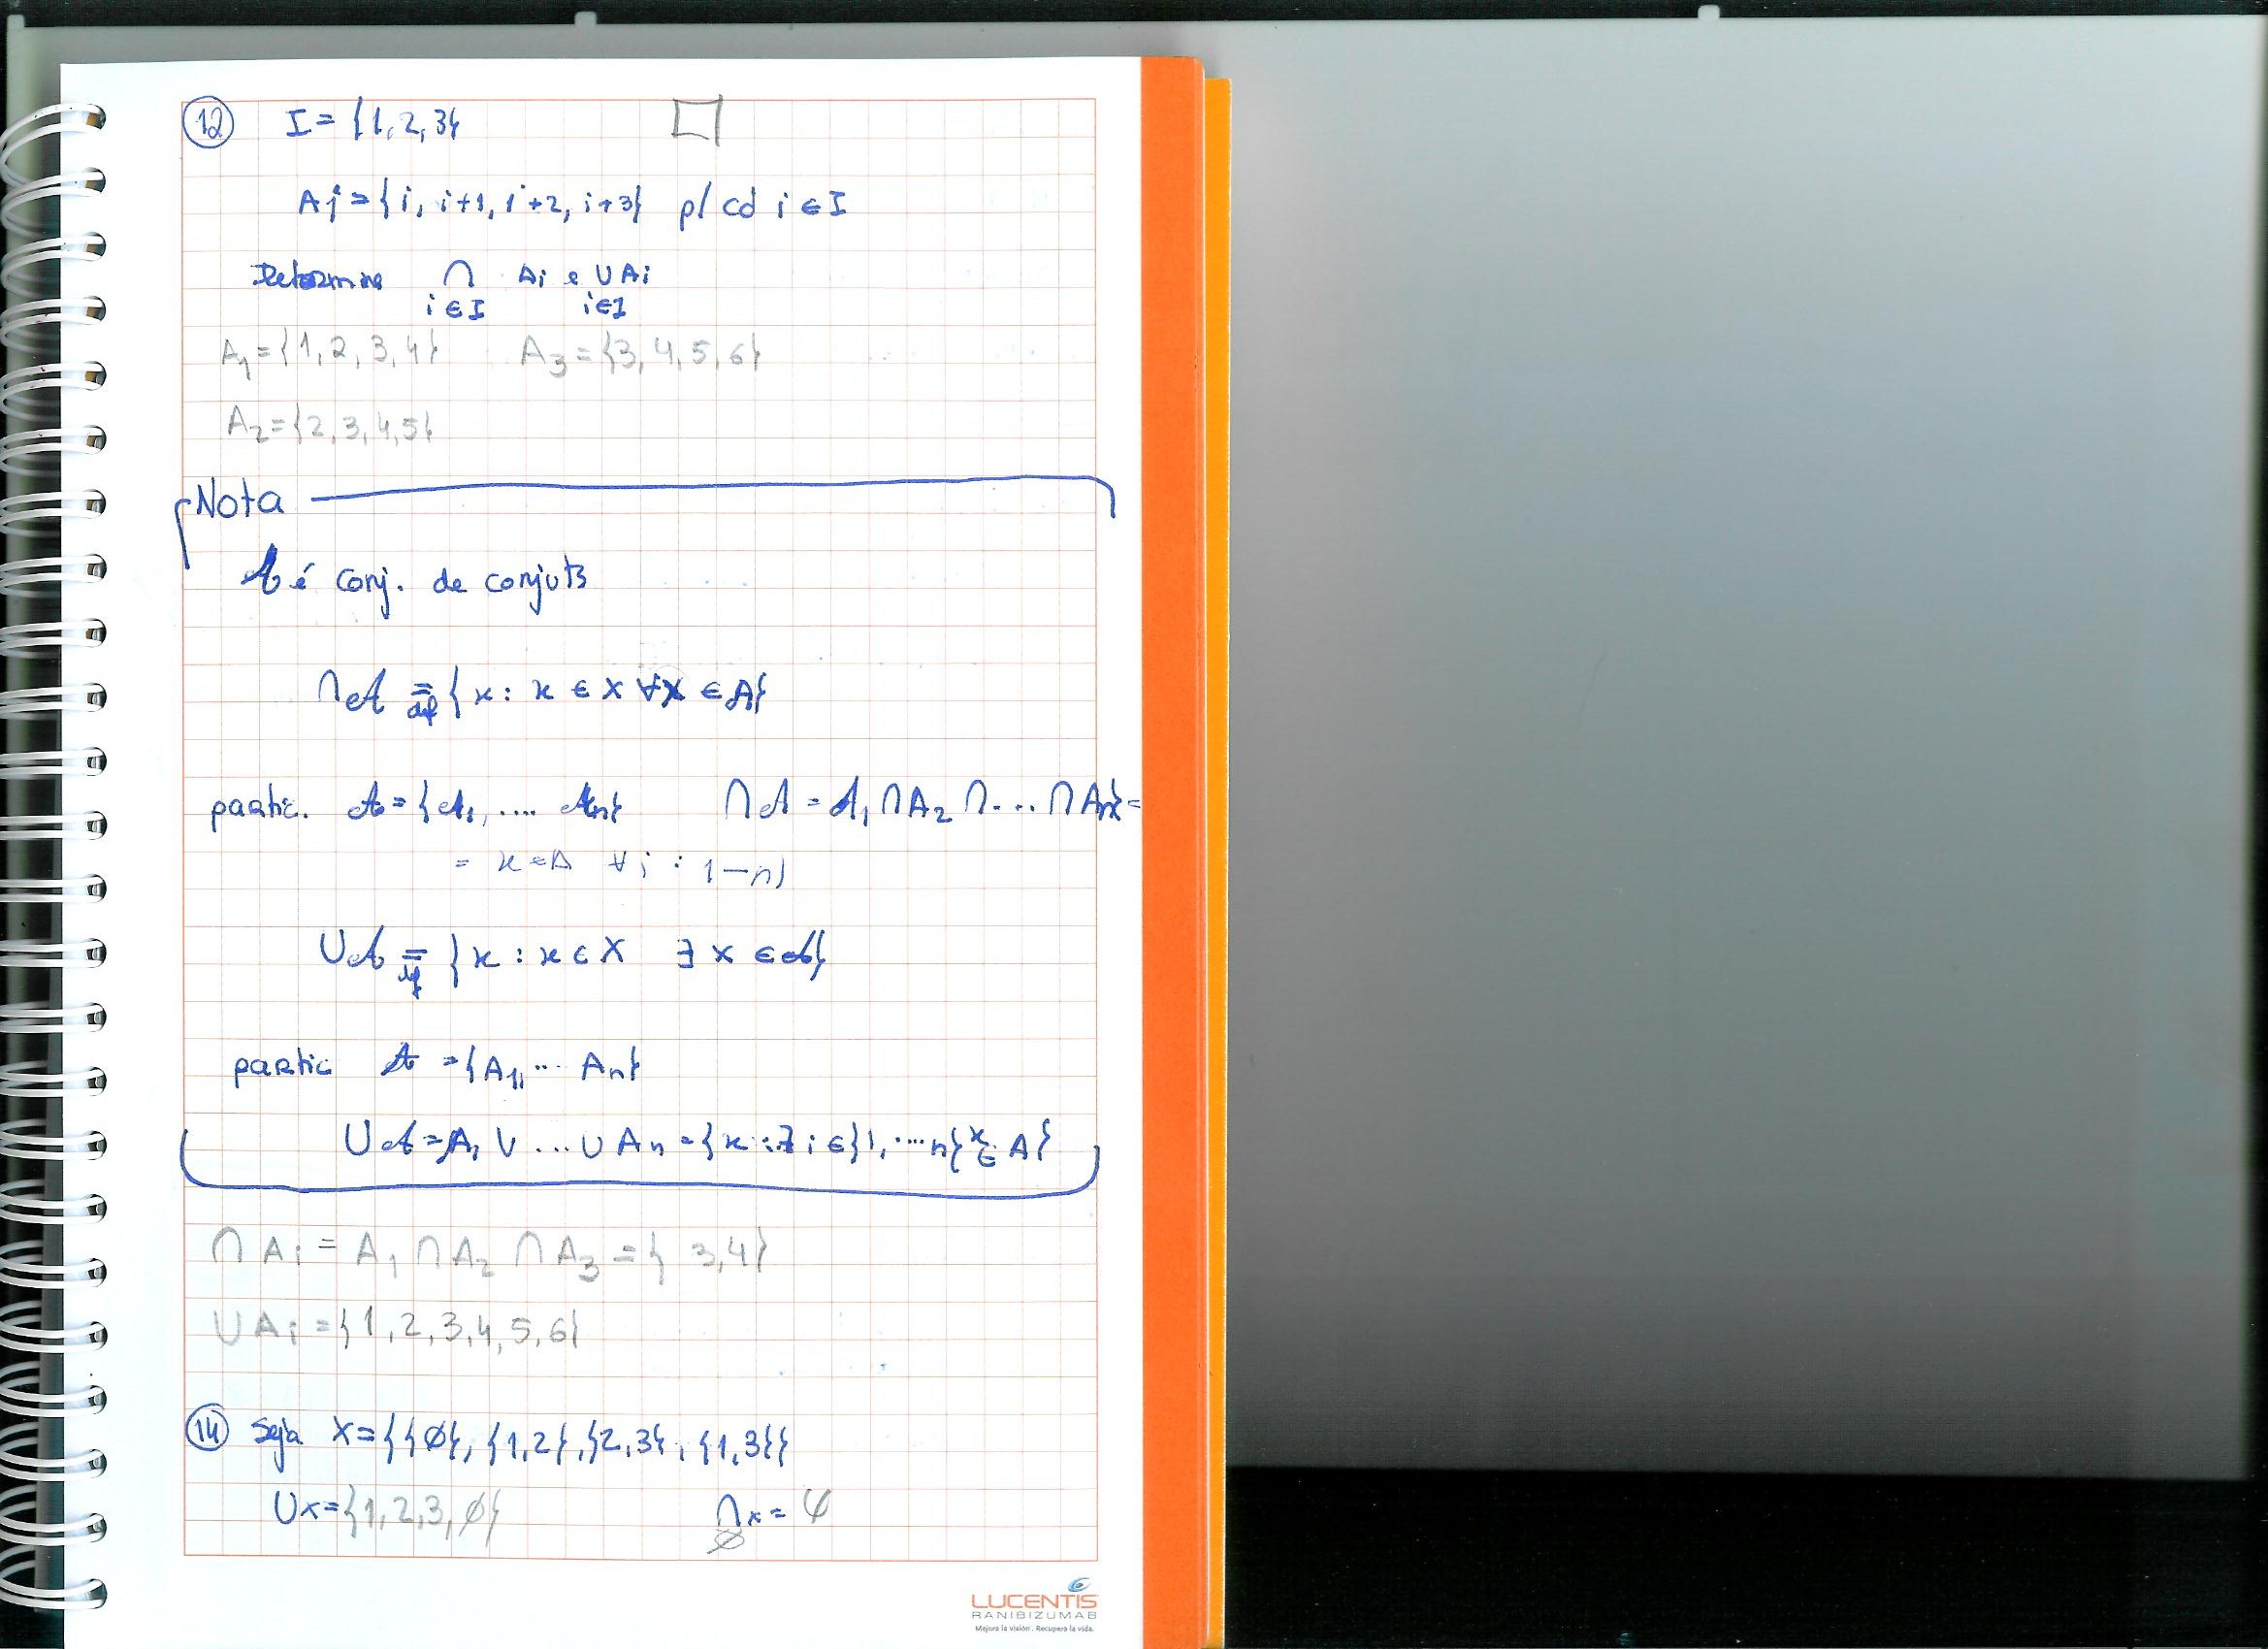 12 I = {1, 2, 3}
Ai = {i, i+1, i+2, i+3} p/ cd i ∈ I
Determine ∩ Ai e ∪ Ai
i ∈ I i ∈ I
A1 = {1, 2, 3, 4} A3 = {3, 4, 5, 6}
A2 = {2, 3, 4, 5}
Nota
A é conj. de conjuts
∩A = {x : x ∈ X ∀X ∈ A}
def
partic. A = {A1, .... An} ∩A = A1 ∩ A2 ∩ ... ∩ An =
= x ∈ A ∀ i : 1 — n}
∪A = {x : x ∈ X ∃ X ∈ A}
def
partic A = {A1, ... An}
∪A = A1 ∪ ... ∪ An = {x : ∃ i ∈ {1, ... n} x ∈ A}
∩ Ai = A1 ∩ A2 ∩ A3 = { 3, 4}
∪ Ai = {1, 2, 3, 4, 5, 6}
14 Seja X = {{∅}, {1, 2}, {2, 3}, {1, 3}}
∪x = {1, 2, 3, ∅} ∩x = φ
∅
LUCENTIS
RANIBIZUMAB
Mejora la visión. Recupera la vida.